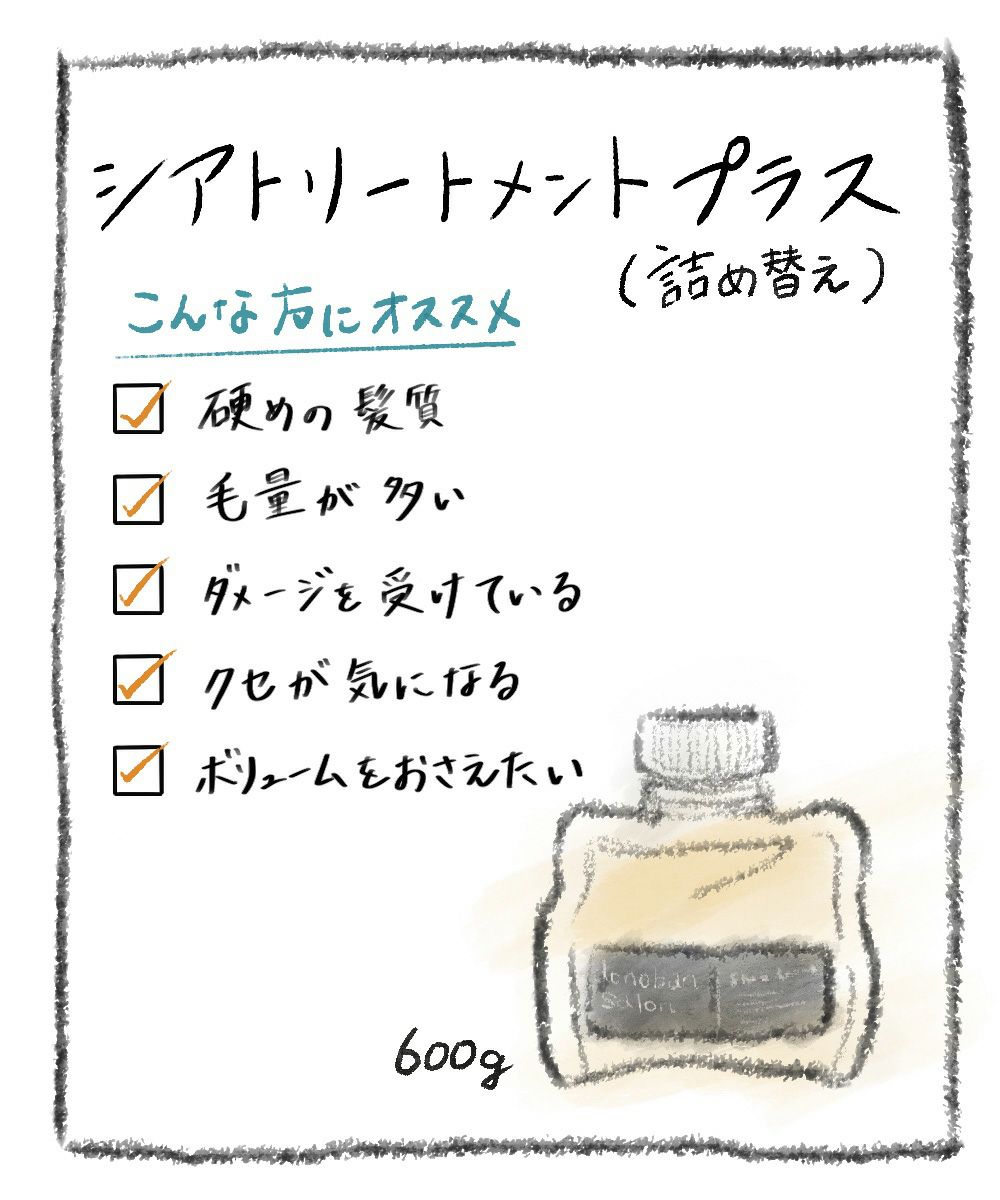 シアトリートメントプラス
(詰め替え)
こんな方にオススメ
硬めの髪質
毛量が多い
ダメージを受けている
クセが気になる
ボリュームをおさえたい
Salon
600g